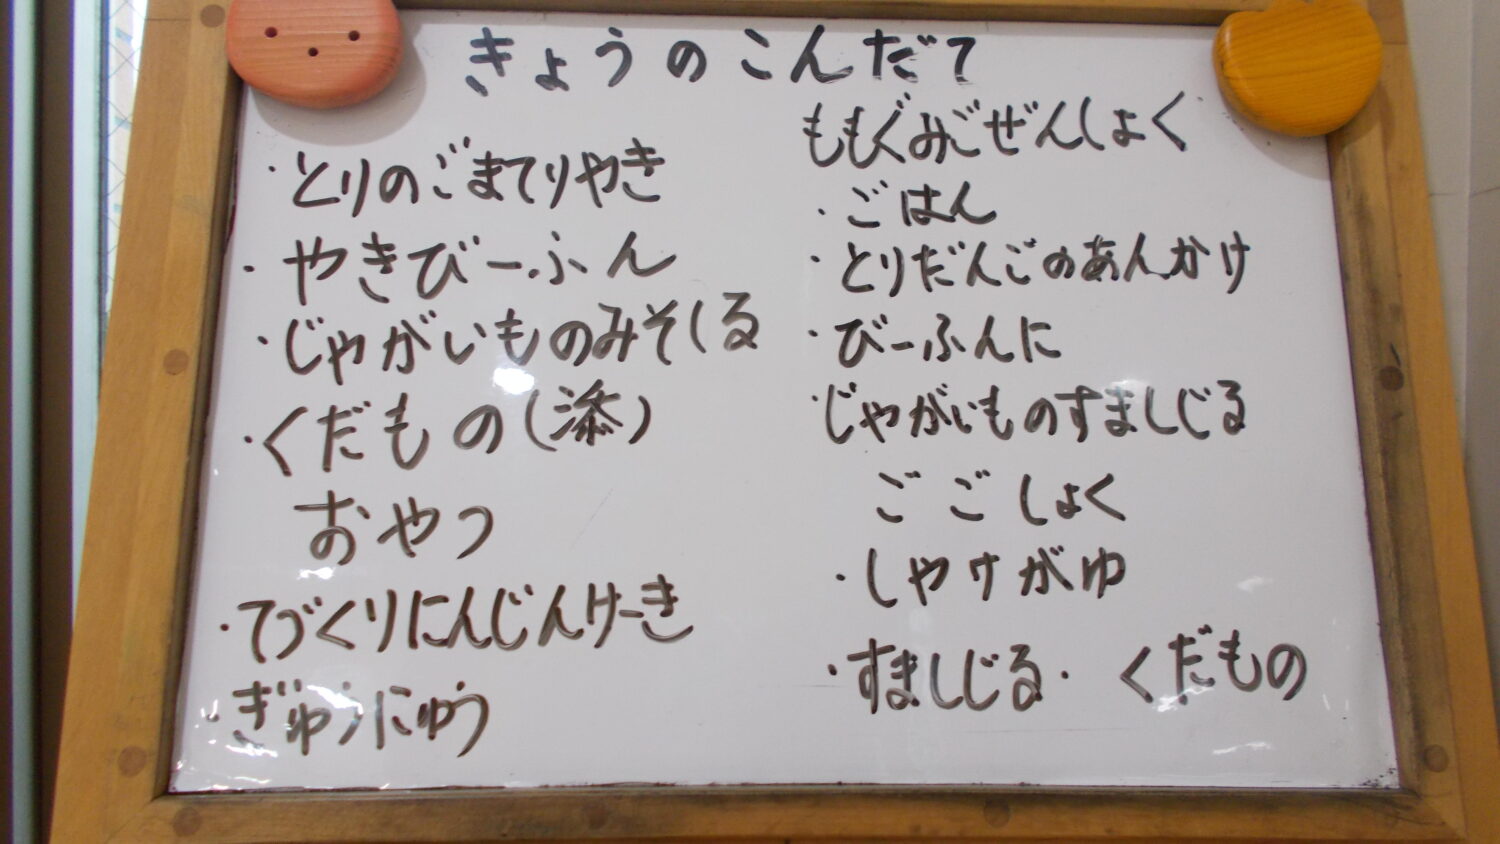 きょうのこんだて
・とりのごまてりやき
・やきびーふん
・じゃがいものみそしる
・くだもの(添)
おやつ
・てづくりにんじんけーき
・ぎゅうにゅう
ももぐみごぜんしょく
・ごはん
・とりだんごのあんかけ
・びーふんに
・じゃがいものすましじる
ごごしょく
・しゃけがゆ
・すましじる・くだもの